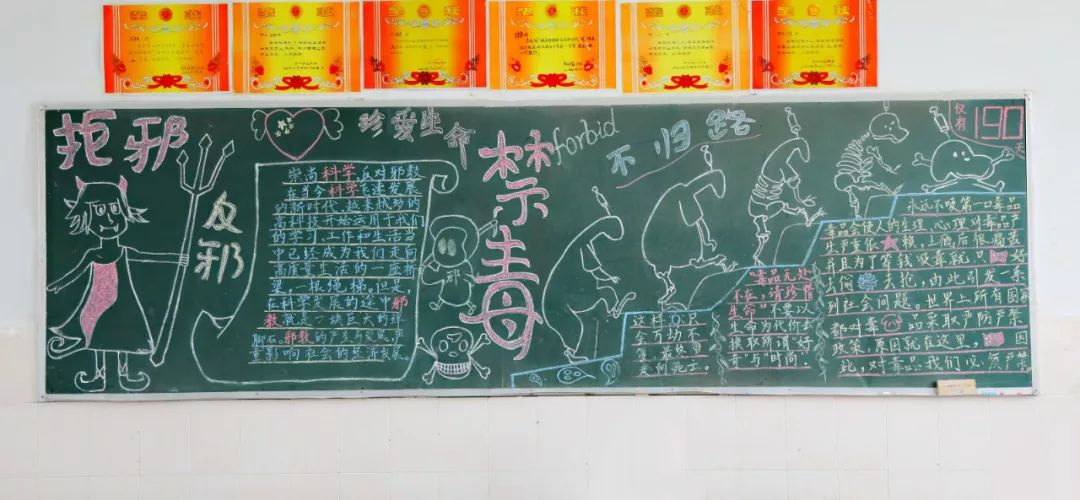 奖状 奖状 奖状 奖状 奖状 奖状
拒邪
反
邪
珍爱生命
禁毒
forbid
不归路
仅有190天
崇尚科学反对邪教
在当今科学飞速发展
的新时代,越来越多的
高科技开始运用于我们
的学习,工作和生活当
中已经成为我们走向
高质量生活的一座桥
梁,一根绳,梯。但是,
在科学发展的途中邪
教就是一块巨大的绊
脚石。邪教的产生与发展,严
重影响社会的经济发展。
邪
这样
会
最终
走向死亡。
"毒品无处
不在,请珍惜
生命"不要以
生命为代价去
换取所谓"好
奇"与"时尚"
永远不吸第一口毒品
毒品会使人的生理,心理对毒品产
生严重依赖,上瘾后很痛苦
并且为了筹钱吸毒就只好
去偷去抢,由此引发一系
列社会问题。世界上所有国家
都对毒品采取严防严禁
政策,原因就在这里,因
此,对毒品,我们必然严禁。